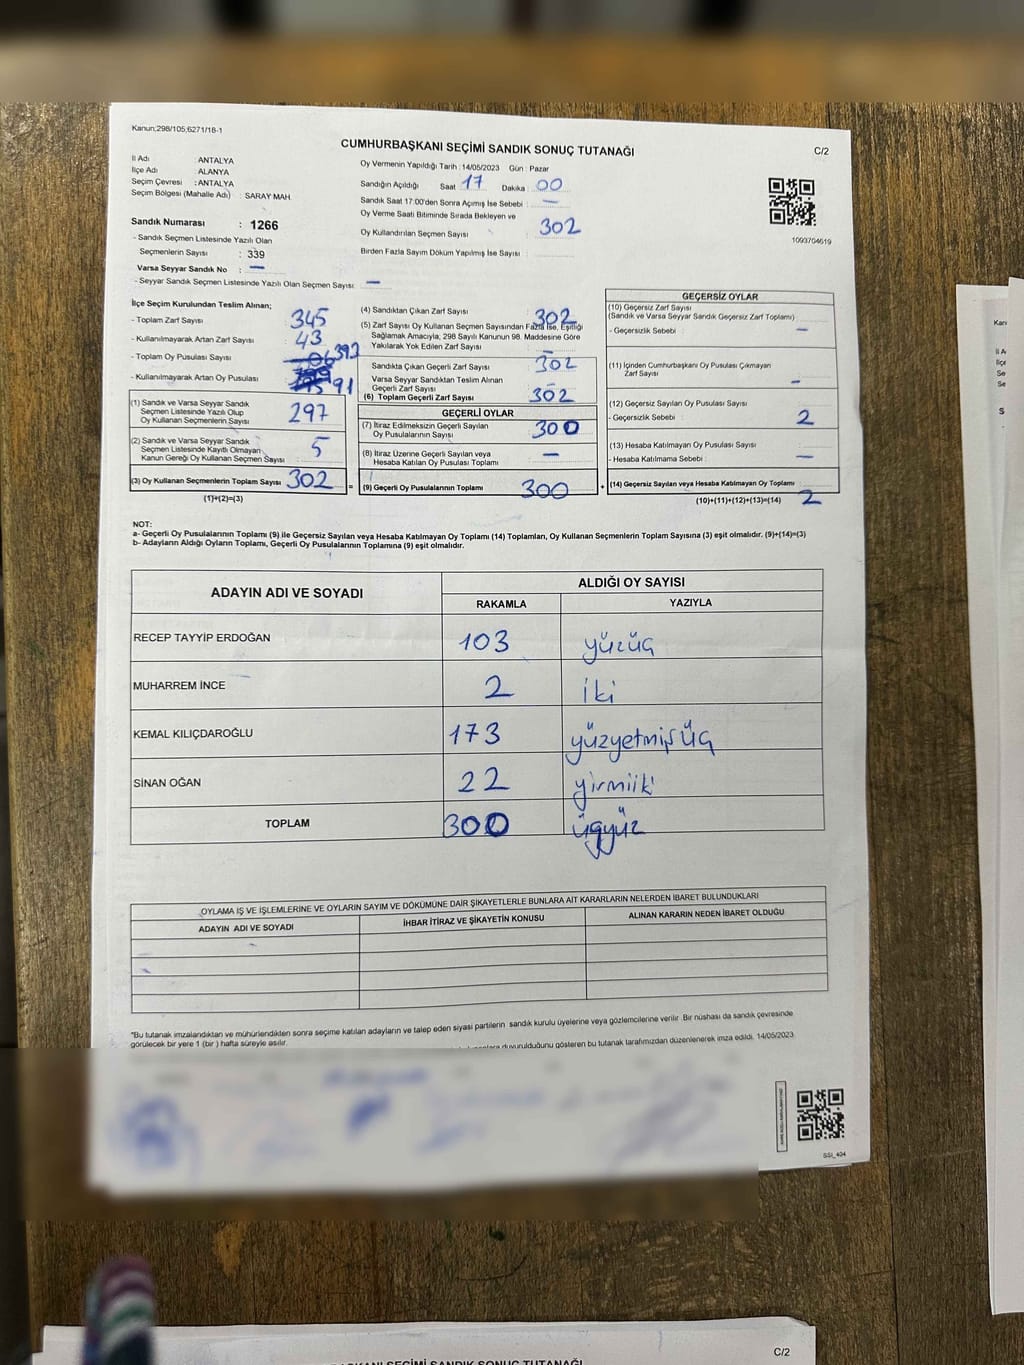 Kanun;298/105,6271/18-1
CUMHURBAŞKANI SEÇİMİ SANDIK SONUÇ TUTANAĞI
C/2
İl Adı : ANTALYA
İlçe Adı : ALANYA
Seçim Çevresi : ANTALYA
Seçim Bölgesi (Mahalle Adı) : SARAY MAH.
Sandık Numarası : 1266
- Sandık Seçmen Listesinde Yazılı Olan
Seçmenlerin Sayısı : 339
Varsa Seyyar Sandık No : —
- Seyyar Sandık Seçmen Listesinde Yazılı Olan Seçmen Sayısı : —
Oy Vermenin Yapıldığı Tarih : 14/05/2023 Gün : Pazar
Sandığın Açıldığı Saat : 17 Dakika : 00
Sandık Saat 17:00'den Sonra Açımış İse Sebebi : —
Oy Verme Saati Bitiminde Sırada Bekleyen ve
Oy Kullandırılan Seçmen Sayısı : 302
Birden Fazla Sayım Döküm Yapılmış İse Sayısı :
1093704619
İlçe Seçim Kurulundan Teslim Alınan;
- Toplam Zarf Sayısı 345
- Kullanılmayarak Artan Zarf Sayısı 43
- Toplam Oy Pusulası Sayısı 393
- Kullanılmayarak Artan Oy Pusulası 91
(1) Sandık ve Varsa Seyyar Sandık
Seçmen Listesinde Yazılı Olup
Oy Kullanan Seçmenlerin Sayısı 297
(2) Sandık ve Varsa Seyyar Sandık
Seçmen Listesinde Kayıtlı Olmayan
Kanun Gereği Oy Kullanan Seçmen Sayısı 5
(3) Oy Kullanan Seçmenlerin Toplam Sayısı 302
(1)+(2)=(3)
(4) Sandıktan Çıkan Zarf Sayısı 302
(5) Zarf Sayısı Oy Kullanan Seçmen Sayısından Fazla İse, Eşitliği
Sağlamak Amacıyla, 298 Sayılı Kanunun 98. Maddesine Göre
Yakılarak Yok Edilen Zarf Sayısı —
Sandıkta Çıkan Geçerli Zarf Sayısı 302
Varsa Seyyar Sandıktan Teslim Alınan
Geçerli Zarf Sayısı
(6) Toplam Geçerli Zarf Sayısı 302
GEÇERLİ OYLAR
(7) İtiraz Edilmeksizin Geçerli Sayılan
Oy Pusulalarının Sayısı 300
(8) İtiraz Üzerine Geçerli Sayılan veya
Hesaba Katılan Oy Pusulası Toplamı —
= (9) Geçerli Oy Pusulalarının Toplamı 300 +
GEÇERSİZ OYLAR
(10) Geçersiz Zarf Sayısı
(Sandık ve Varsa Seyyar Sandık Geçersiz Zarf Toplamı)
- Geçersizlik Sebebi : —
(11) İçinden Cumhurbaşkanı Oy Pusulası Çıkmayan
Zarf Sayısı —
(12) Geçersiz Sayılan Oy Pusulası Sayısı
- Geçersizlik Sebebi : 2
(13) Hesaba Katılmayan Oy Pusulası Sayısı
- Hesaba Katılmama Sebebi : —
(14) Geçersiz Sayılan veya Hesaba Katılmayan Oy Toplamı
(10)+(11)+(12)+(13)=(14) 2
NOT:
a- Geçerli Oy Pusulalarının Toplamı (9) ile Geçersiz Sayılan veya Hesaba Katılmayan Oy Toplamı (14) Toplamları, Oy Kullanan Seçmenlerin Toplam Sayısına (3) eşit olmalıdır. (9)+(14)=(3)
b- Adayların Aldığı Oyların Toplamı, Geçerli Oy Pusulalarının Toplamına (9) eşit olmalıdır.
ADAYIN ADI VE SOYADI
ALDIĞI OY SAYISI
RAKAMLA YAZIYLA
RECEP TAYYİP ERDOĞAN 103 yüzüç
MUHARREM İNCE 2 iki
KEMAL KILIÇDAROĞLU 173 yüzyetmişüç
SİNAN OĞAN 22 yirmiiki
TOPLAM 300 üçyüz
OYLAMA İŞ VE İŞLEMLERİNE VE OYLARIN SAYIM VE DÖKÜMÜNE DAİR ŞİKAYETLERLE BUNLARA AİT KARARLARIN NELERDEN İBARET BULUNDUKLARI
ADAYIN ADI VE SOYADI İHBAR İTİRAZ VE ŞİKAYETİN KONUSU ALINAN KARARIN NEDEN İBARET OLDUĞU
*Bu tutanak imzalandıktan ve mühürlendikten sonra seçime katılan adayların ve talep eden siyasi partilerin sandık kurulu üyelerine veya gözlemcilerine verilir. Bir nüshası da sandık çevresinde
görülecek bir yere 1 (bir) hafta süreyle asılır.
duyurulduğunu gösteren bu tutanak tarafımızdan düzenlenerek imza edildi. 14/05/2023
C/2
SEÇİMİ SANDIK SONUÇ TUTANAĞI